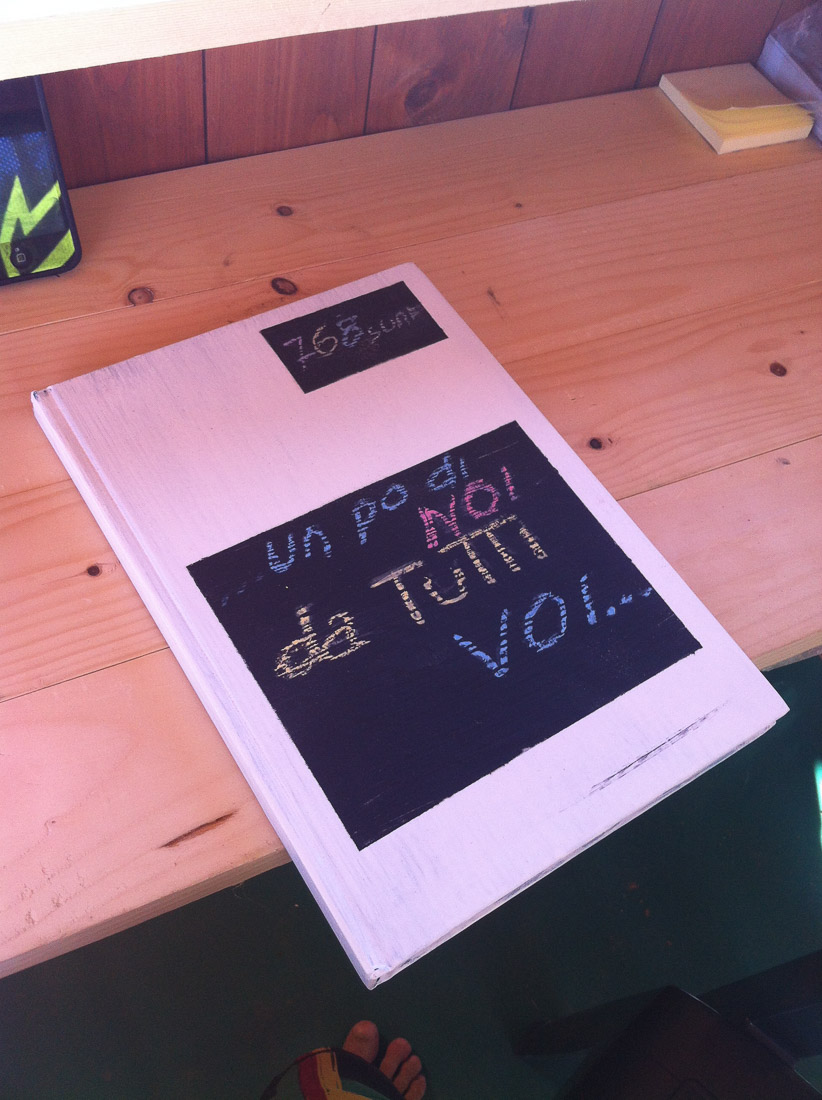 768 SURF
...un po di
NOI
da TuTTI
VOI...